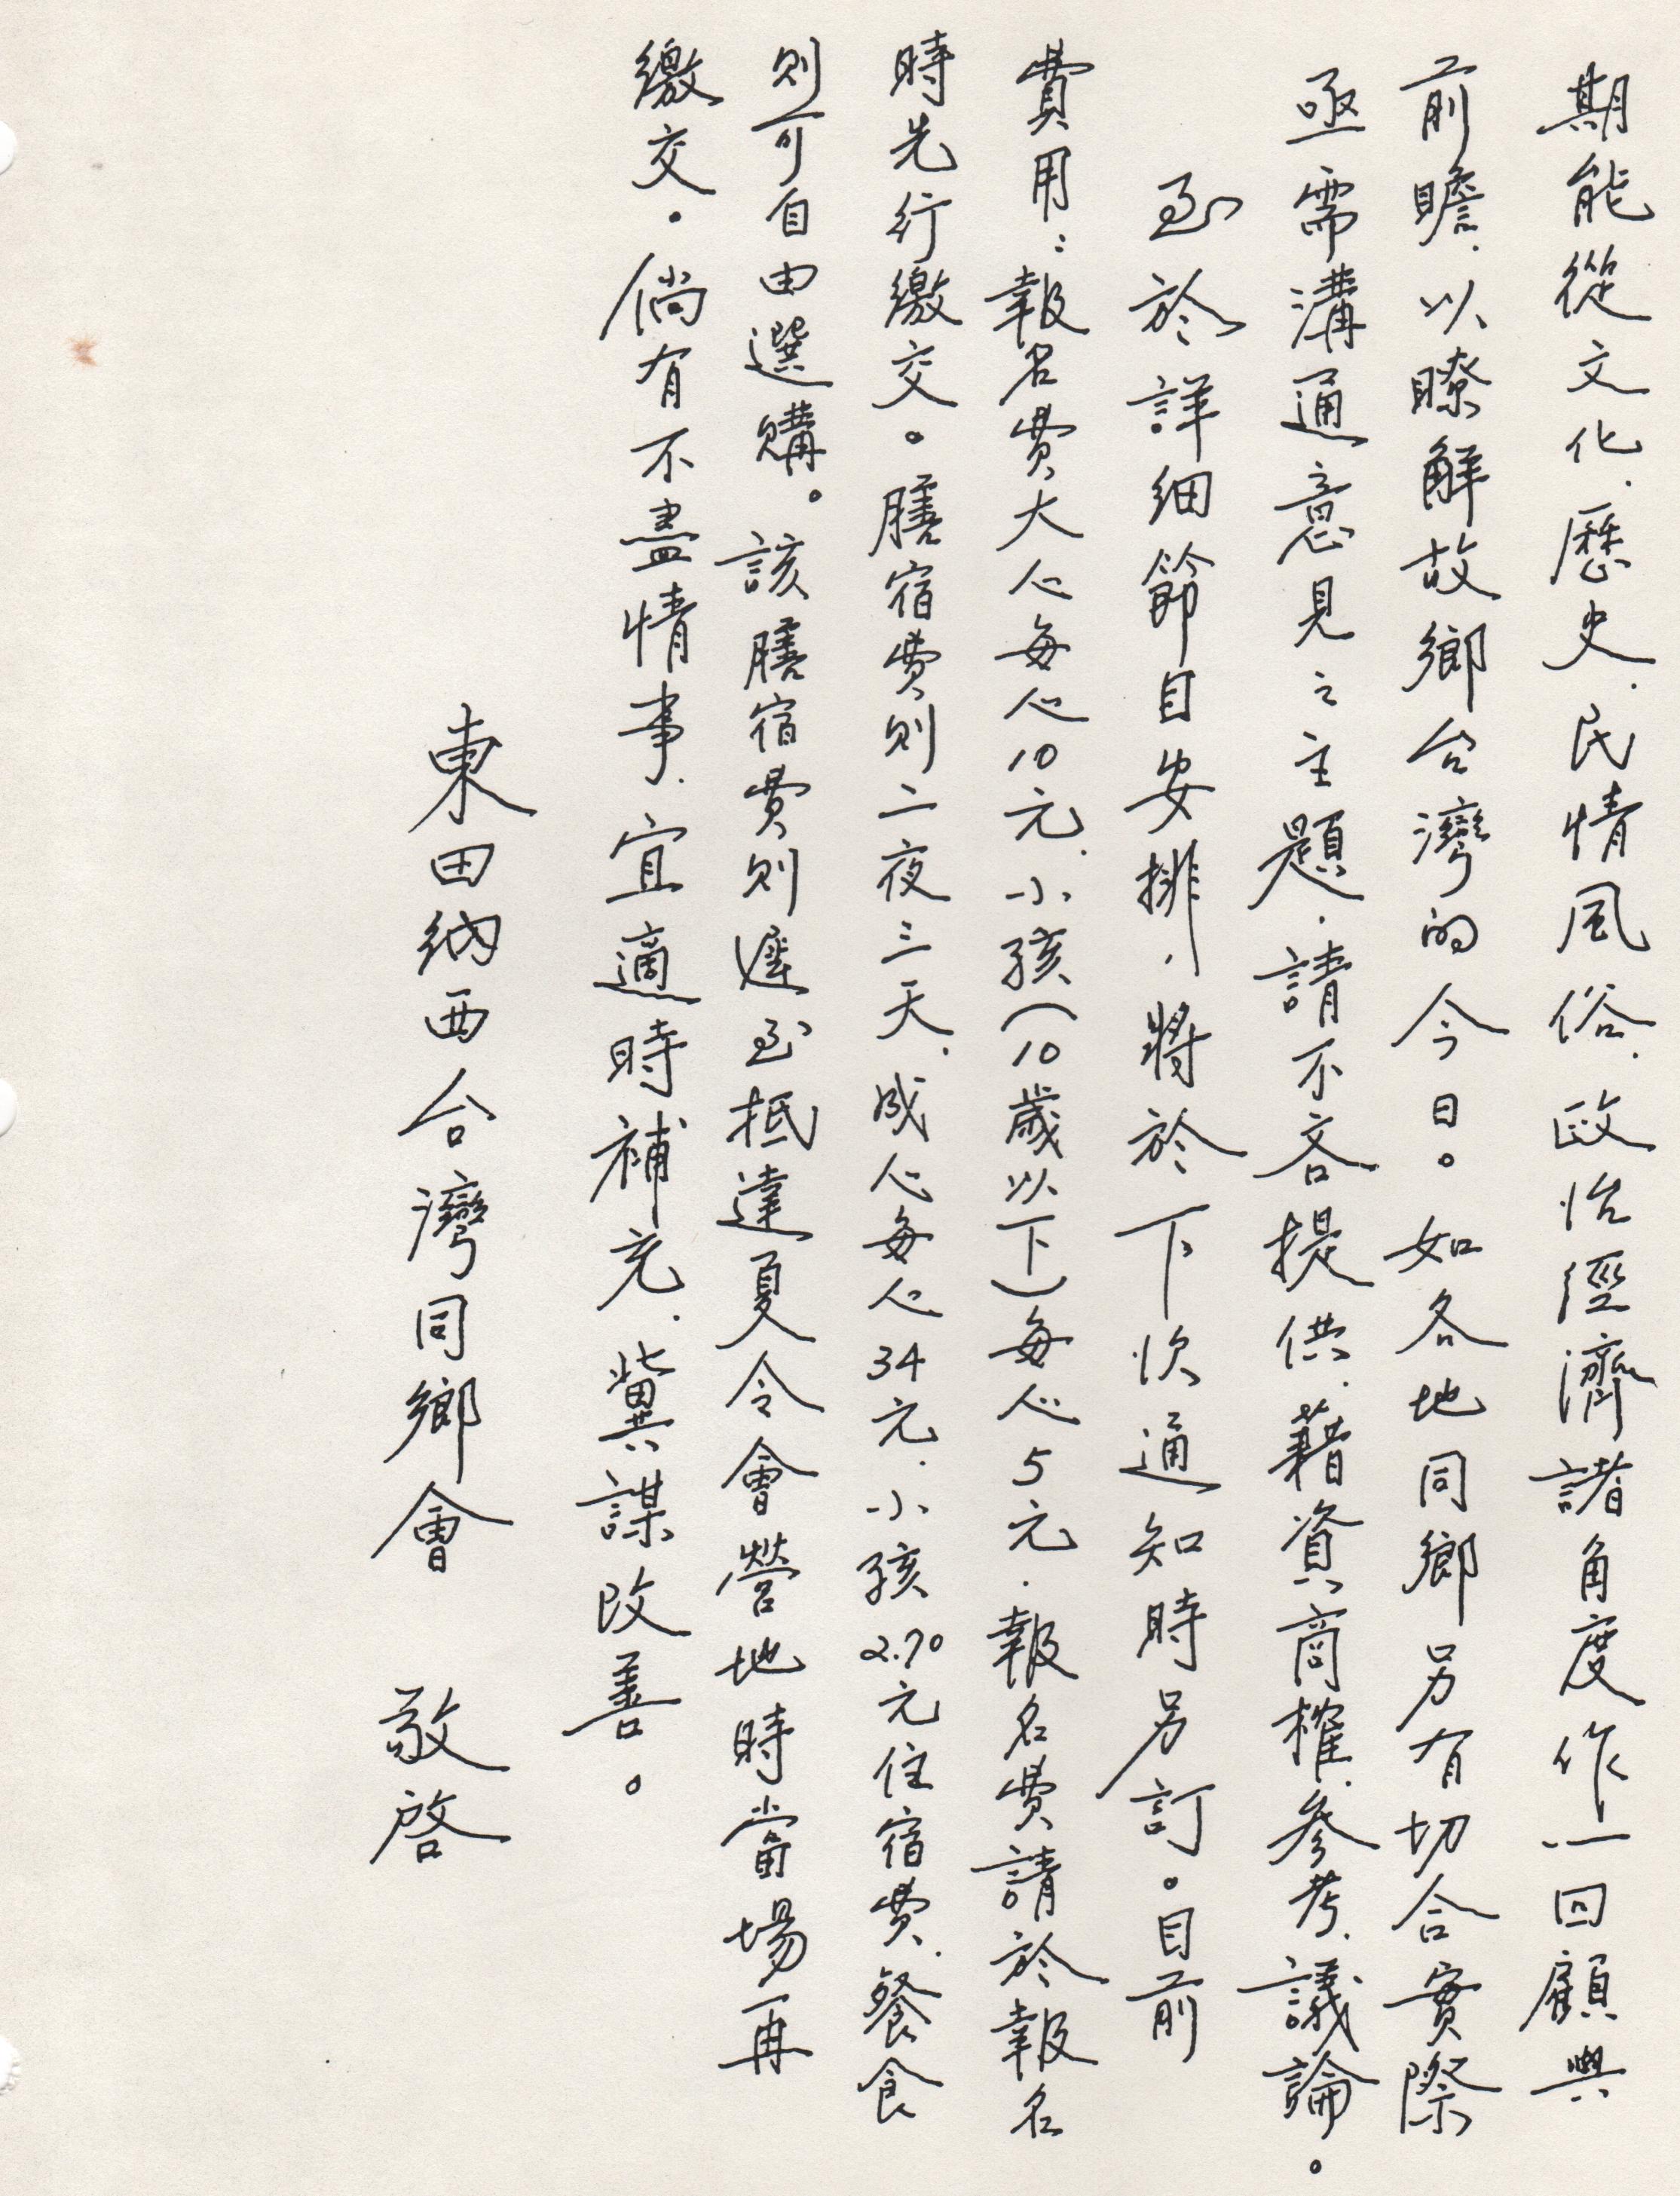 期能從文化.歷史.民情風俗.政治經濟諸角度作一回顧與
前瞻.以瞭解故鄉台灣的今日。如各地同鄉另有切合實際
亟需溝通意見之主題.請不吝提供.藉資商榷.參考.議論。
至於詳細節目安排.將於下次通知時另訂。目前
費用:報名費大人每人10元.小孩(10歲以下)每人5元.報名費請於報名
時先行繳交。膳宿費則二夜三天.成人每人34元.小孩2.70元住宿費.餐食
則可自由選購。該膳宿費則遲至抵達夏令會營地時當場再
繳交.倘有不盡情事.宜適時補充.冀謀改善。
東田納西台灣同鄉會 敬啓